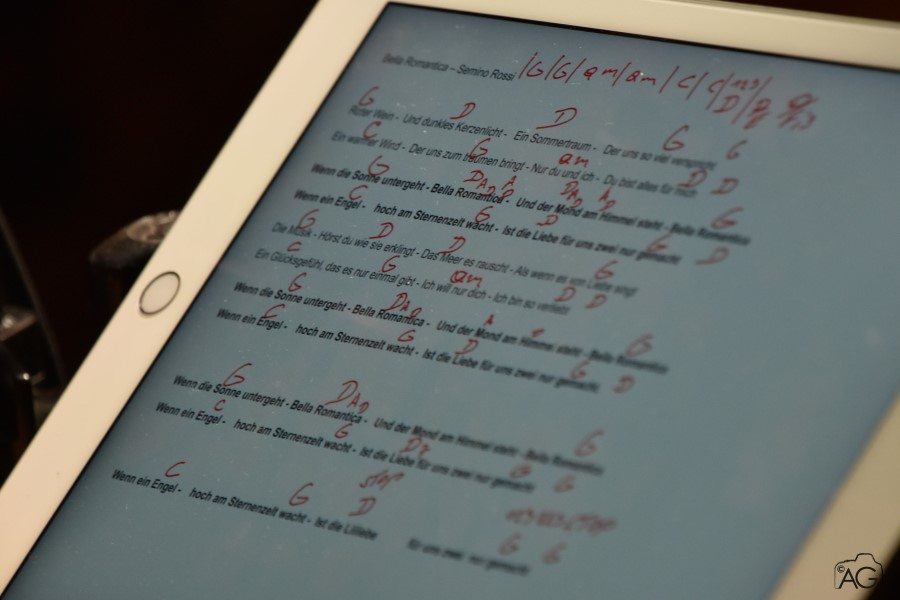 Bella Romantica – Semino Rossi |G|G|am|am|C|C|
D
G D D G G
Roter Wein - Und dunkles Kerzenlicht - Ein Sommertraum - Der uns so viel verspricht
C G am D D
Ein warmer Wind - Der uns zum träumen bringt - Nur du und ich - Du bist alles für mich
G D A D A D A D A D G
Wenn die Sonne untergeht - Bella Romantica - Und der Mond am Himmel steht - Bella Romantica
C G D G D
Wenn ein Engel - hoch am Sternenzelt wacht - Ist die Liebe für uns zwei nur gemacht
G D D G
Die Musik - Hörst du wie sie erklingt - Das Meer es rauscht - Als wenn es von Liebe singt
C G am D D
Ein Glücksgefühl, das es nur einmal gibt - Ich will nur dich - Ich bin so verliebt
G D A D A G
Wenn die Sonne untergeht - Bella Romantica - Und der Mond am Himmel steht - Bella Romantica
C G D G D
Wenn ein Engel - hoch am Sternenzelt wacht - Ist die Liebe für uns zwei nur gemacht
G D A D G
Wenn die Sonne untergeht - Bella Romantica - Und der Mond am Himmel steht - Bella Romantica
C G D G G
Wenn ein Engel - hoch am Sternenzelt wacht - Ist die Liebe für uns zwei nur gemacht
STOP
C G D G G
Wenn ein Engel - hoch am Sternenzelt wacht - Ist die Lilliebe für uns zwei nur gemacht
©AG